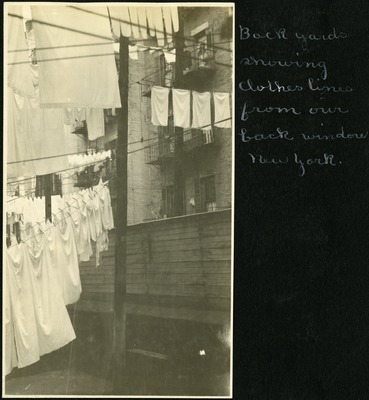 Back yards
showing
clothes lines
from our
back window
New York.